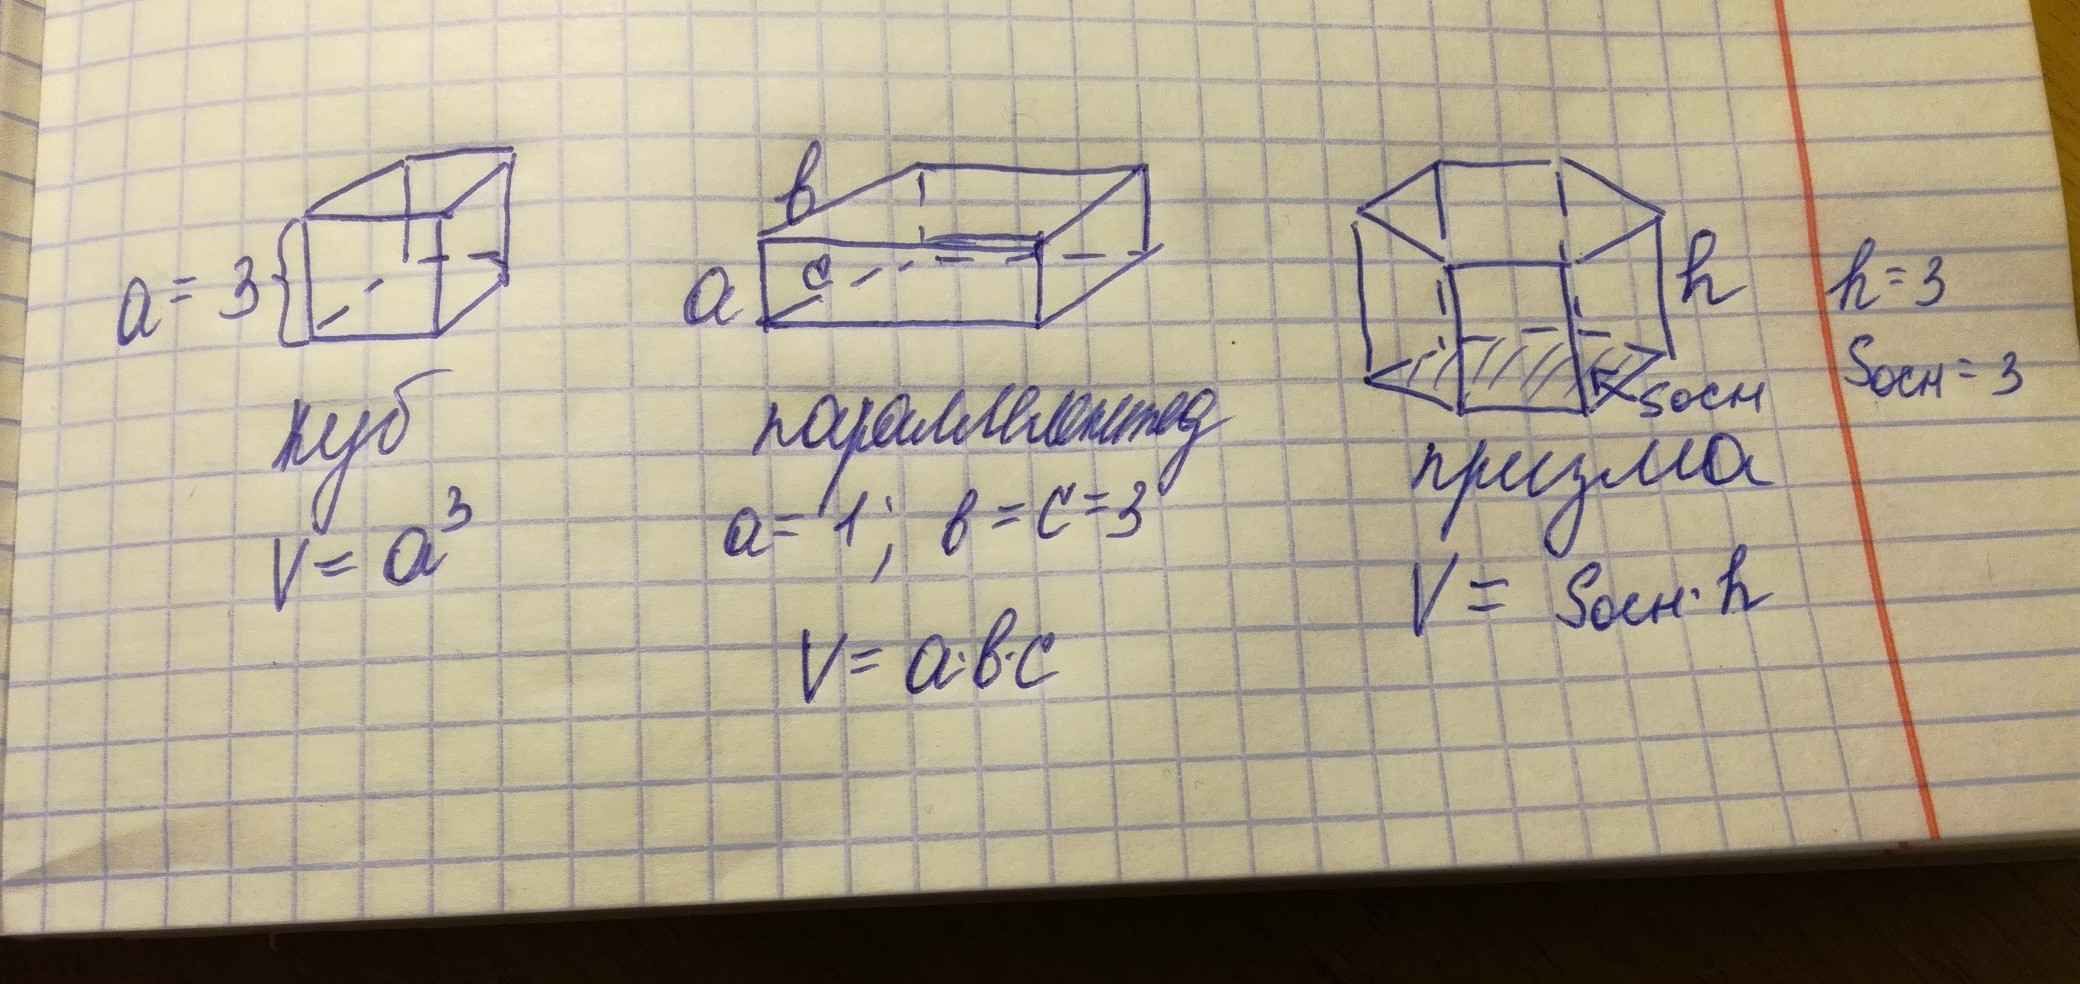 a = 3
куб
V = a³
в
a
c
параллелепипед
a = 1; в = c = 3
V = a·в·c
h
Sосн
призма
V = Sосн·h
h = 3
Sосн = 3